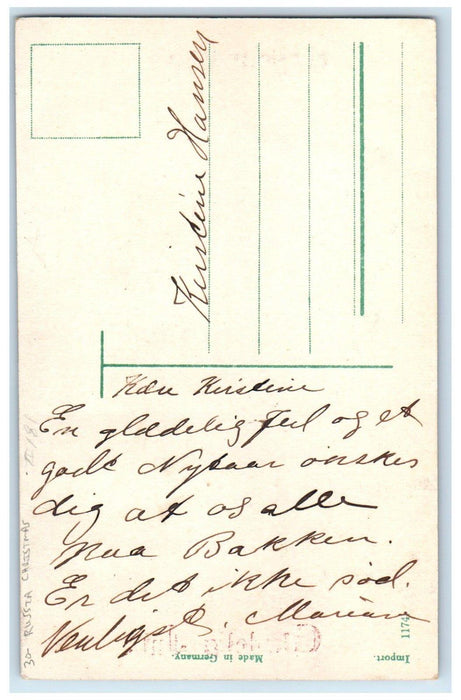 Kirstine Hansen
Kære Kirstine
En glædelig Jul og et
godt Nytaar ønskes
dig at os alle
paa Bakken.
Er det ikke sød.
Venligst, Marian
Made in Germany.
Import.
1174
30- RUSSIA CHRISTMAS